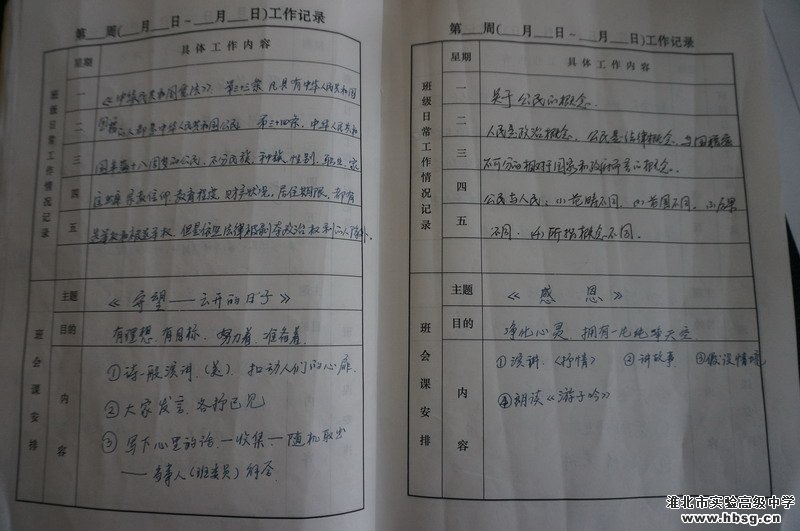 第___周(___月___日~___月___日)工作记录
星期 具体工作内容
班级日常工作情况记录
一 《中华民共和国宪法》第三十三条 凡具有中华人民共和国
二 国籍的人都是中华人民共和国公民 第三十四条，中华人民共和
三 国年满十八周岁的公民，不分民族，种族，性别，职业，家
四 庭出身 宗教信仰 教育程度，财产状况，居住期限，都有
五 选举权和被选举权，但是依照法律被剥夺政治权利的人除外.
班会课安排
主题 《守望——云开的日子》
目的 有理想，有目标，努力着，准备着.
内容
①诗一般演讲.(美). 扣动人们的心扉.
②大家发言，各抒己见
③写下心里的话.一收集一随机取出
——当事人(班委员)解答.
第___周(___月___日~___月___日)工作记录
星期 具体工作内容
班级日常工作情况记录
一 关于公民的概念.
二 人民是政治概念，公民是法律概念，与国籍
三 不可分的相对于国家和政府而言的概念.
四 公民与人民：(1)范畴不同，(2)范围不同，(3)后果
五 不同. (4)所指概念不同.
班会课安排
主题 《感恩》
目的 净化心灵，拥有一片纯净天空
内容
①演讲.(抒情) ②讲故事. ③假设情境
④朗读《游子吟》
淮北市实验高级中学
www.hbsg.cn